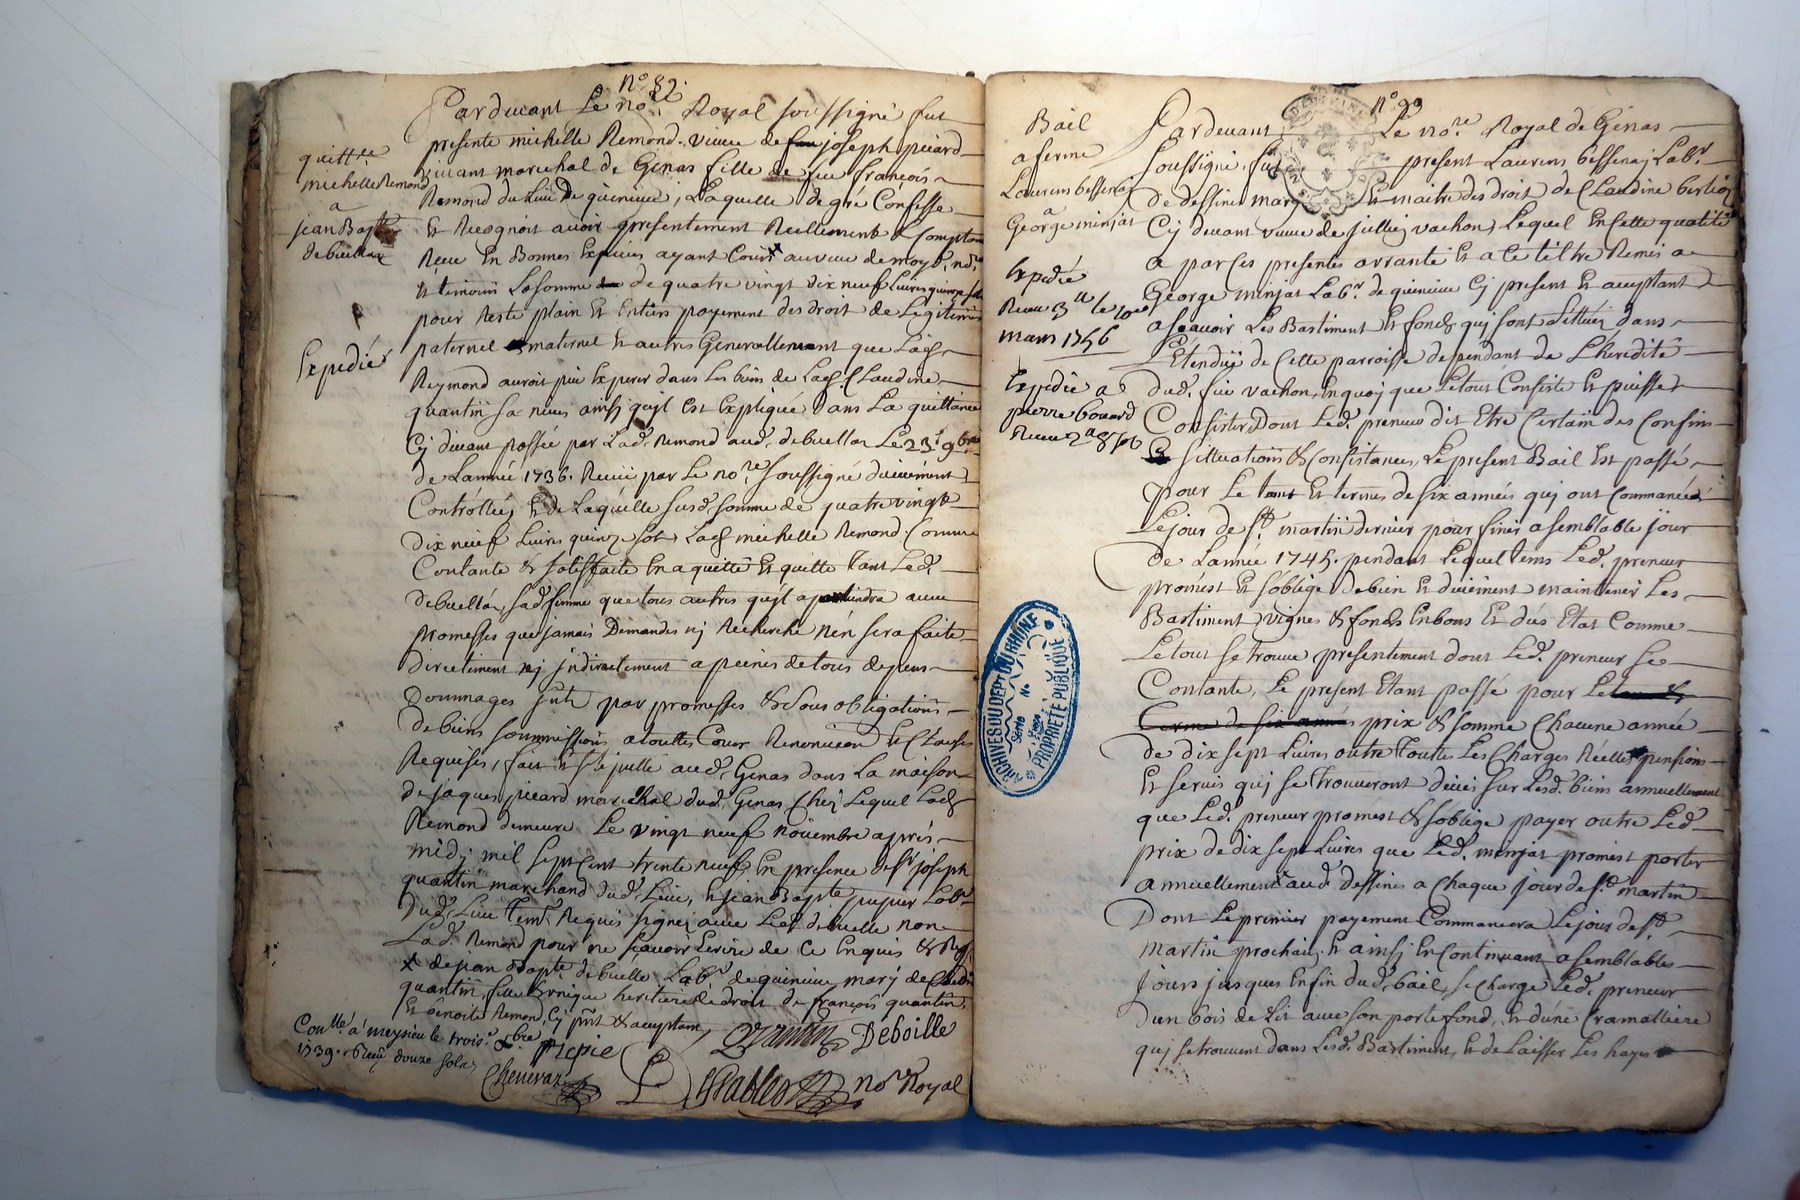 N.o 82.
Pardevant Le no.re Royal soussigné fut
presente michelle Remond veuve de joseph picard
vivant marechal de Genas fille de feu françois
Remond du Lieu de quinieu, Laquelle de gré Confesse
Et Recognoit avoir presentement Reellement & Comptant
Receu En Bonnes Especes ayant Cours au veu de moyd. no.re
Et temoins La somme de quatre vingt dix neuf Livres quinze sols
pour Reste plain Et Entier payement des droit de Legitimes
paternel maternel Et autres Generallement que Lad.
Reymond auroit pû Esperer dans Les biens de Lad. Claudine
quantin sa niece ainsy quil Est Expliqué dans La quittance
Cy devant Passée par Lad. Remond aud. debuella Le 23.e 9bre
de Lannée 1736. Receüe par Le no.re soussigné düement
Controllée, Et de Laquelle susd. somme de quatre vingt
dix neuf Livres quinze sols Lad. michelle Remond Comme
Contante & satisfaite En a quitté Et quitte tant Led.
debuella, sad. femme que tous autres quil apartiendra avec
promesses que jamais Demandes ny Recherche n'en sera faite
Directement ny jndirectement a peines de tous depens
Dommages
par promesses & sous obligations
de biens soumissions a touttes Cour Renonciation Et Clauses
Requises, fait Et
aud. Genas dans La maison
de jaques picard marechal dud. Genas Chez Lequel Lad.
Remond demeure Le vingt neuf novembre aprés
midy mil sept Cent trente neuf, En presence de s.r joseph
quantin marchand dud. Lieu, Et jean Bapte
Lab.r
dud. Lieu Tem. Requis signez avec Led. debuelle non
Lad. Remond pour ne sçavoir Ecrire de Ce Enquis & Req.
x de jean Bapte debuelle Lab.r de quinieu mary de
quantin, fille & unique heritiere de droit de françois quantin
Et benoite Remond, Cy pnt & aceptant
Quantin Deboille
no.re Royal
Con.llé a meysieu le trois.e xbre
1739. Receu douze sols
quitt.ce
michelle Remond
a
jean Bapte
debuellaz
Expediée
N.o 93
Pardevant Le no.re Royal de Genas
soussigné, fut present Laurens bessenay Lab.r
de dessines mary Et maitre des droit de Claudine
Cy devant veuve de jullien vachon, Lequel En cette qualité
a par Ces presentes arranté Et a tel tiltre Remis a
George minjat Lab.r de quinieu Cy present Et aceptant
asçavoir Les Bastiment Et fonds quy sont sittuéz dans
L'étendüe de Cette parroisse dependant de L'heredité
dud. feu vachon, En quoy que Le tout Consiste Et puisse
Consister, Dont Led. preneur dit Etre Certain des Confins
situations & Consistances, Le present Bail Est passé
pour Le tems Et termes de six années quy ont Commancés
Le jour de s.t martin dernier pour finir a semblable jour
de Lannée 1745. pendant Lequel tems Led. preneur
promest Et soblige de bien Et düement maintenir Les
Bastiment, vignes & fonds En bons Et düs Etat Comme
Le tout se trouve presentement dont Led. preneur se
Contante, Le present Etant passé pour Le tems &
Terme de six années prix & somme Chacune année
de dix sept Livres outre Toutes Les Charges Réelles pensions
Et servis quy se trouveront deües sur Lesd. biens annuellement
que Led. preneur promest & soblige payer outre Led.
prix de dix sept Livres que Led. minjat promest porter
annuellement aud. dessines a Chaque jour de s.t martin
Dont Le premier payement Commancera Le jour de s.t
martin prochain Et ainsy En Continuant a semblables
jours jusques En fin dud. bail, se Charge Led. preneur
d'un bois de Lit avec son porte fond, Et d'une Cramalliere
quy se trouvent dans Lesd. Bastiment, Et de Laisser Les hayes
Bail
a ferme
Laurens bessenay
a
George minjat
Expedié
mars 1756
Expedié a
pierre bouard
ARCHIVES DU DEPT DU RHONE
Série
No
PROPRIÉTÉ PUBLIQUE